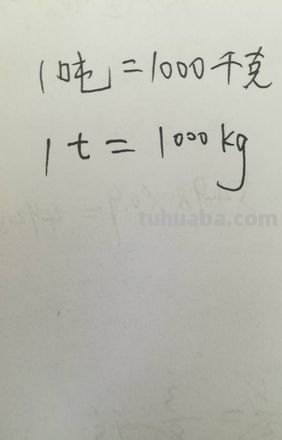 1吨=1000千克
1t=1000kg
tuhuaba.com